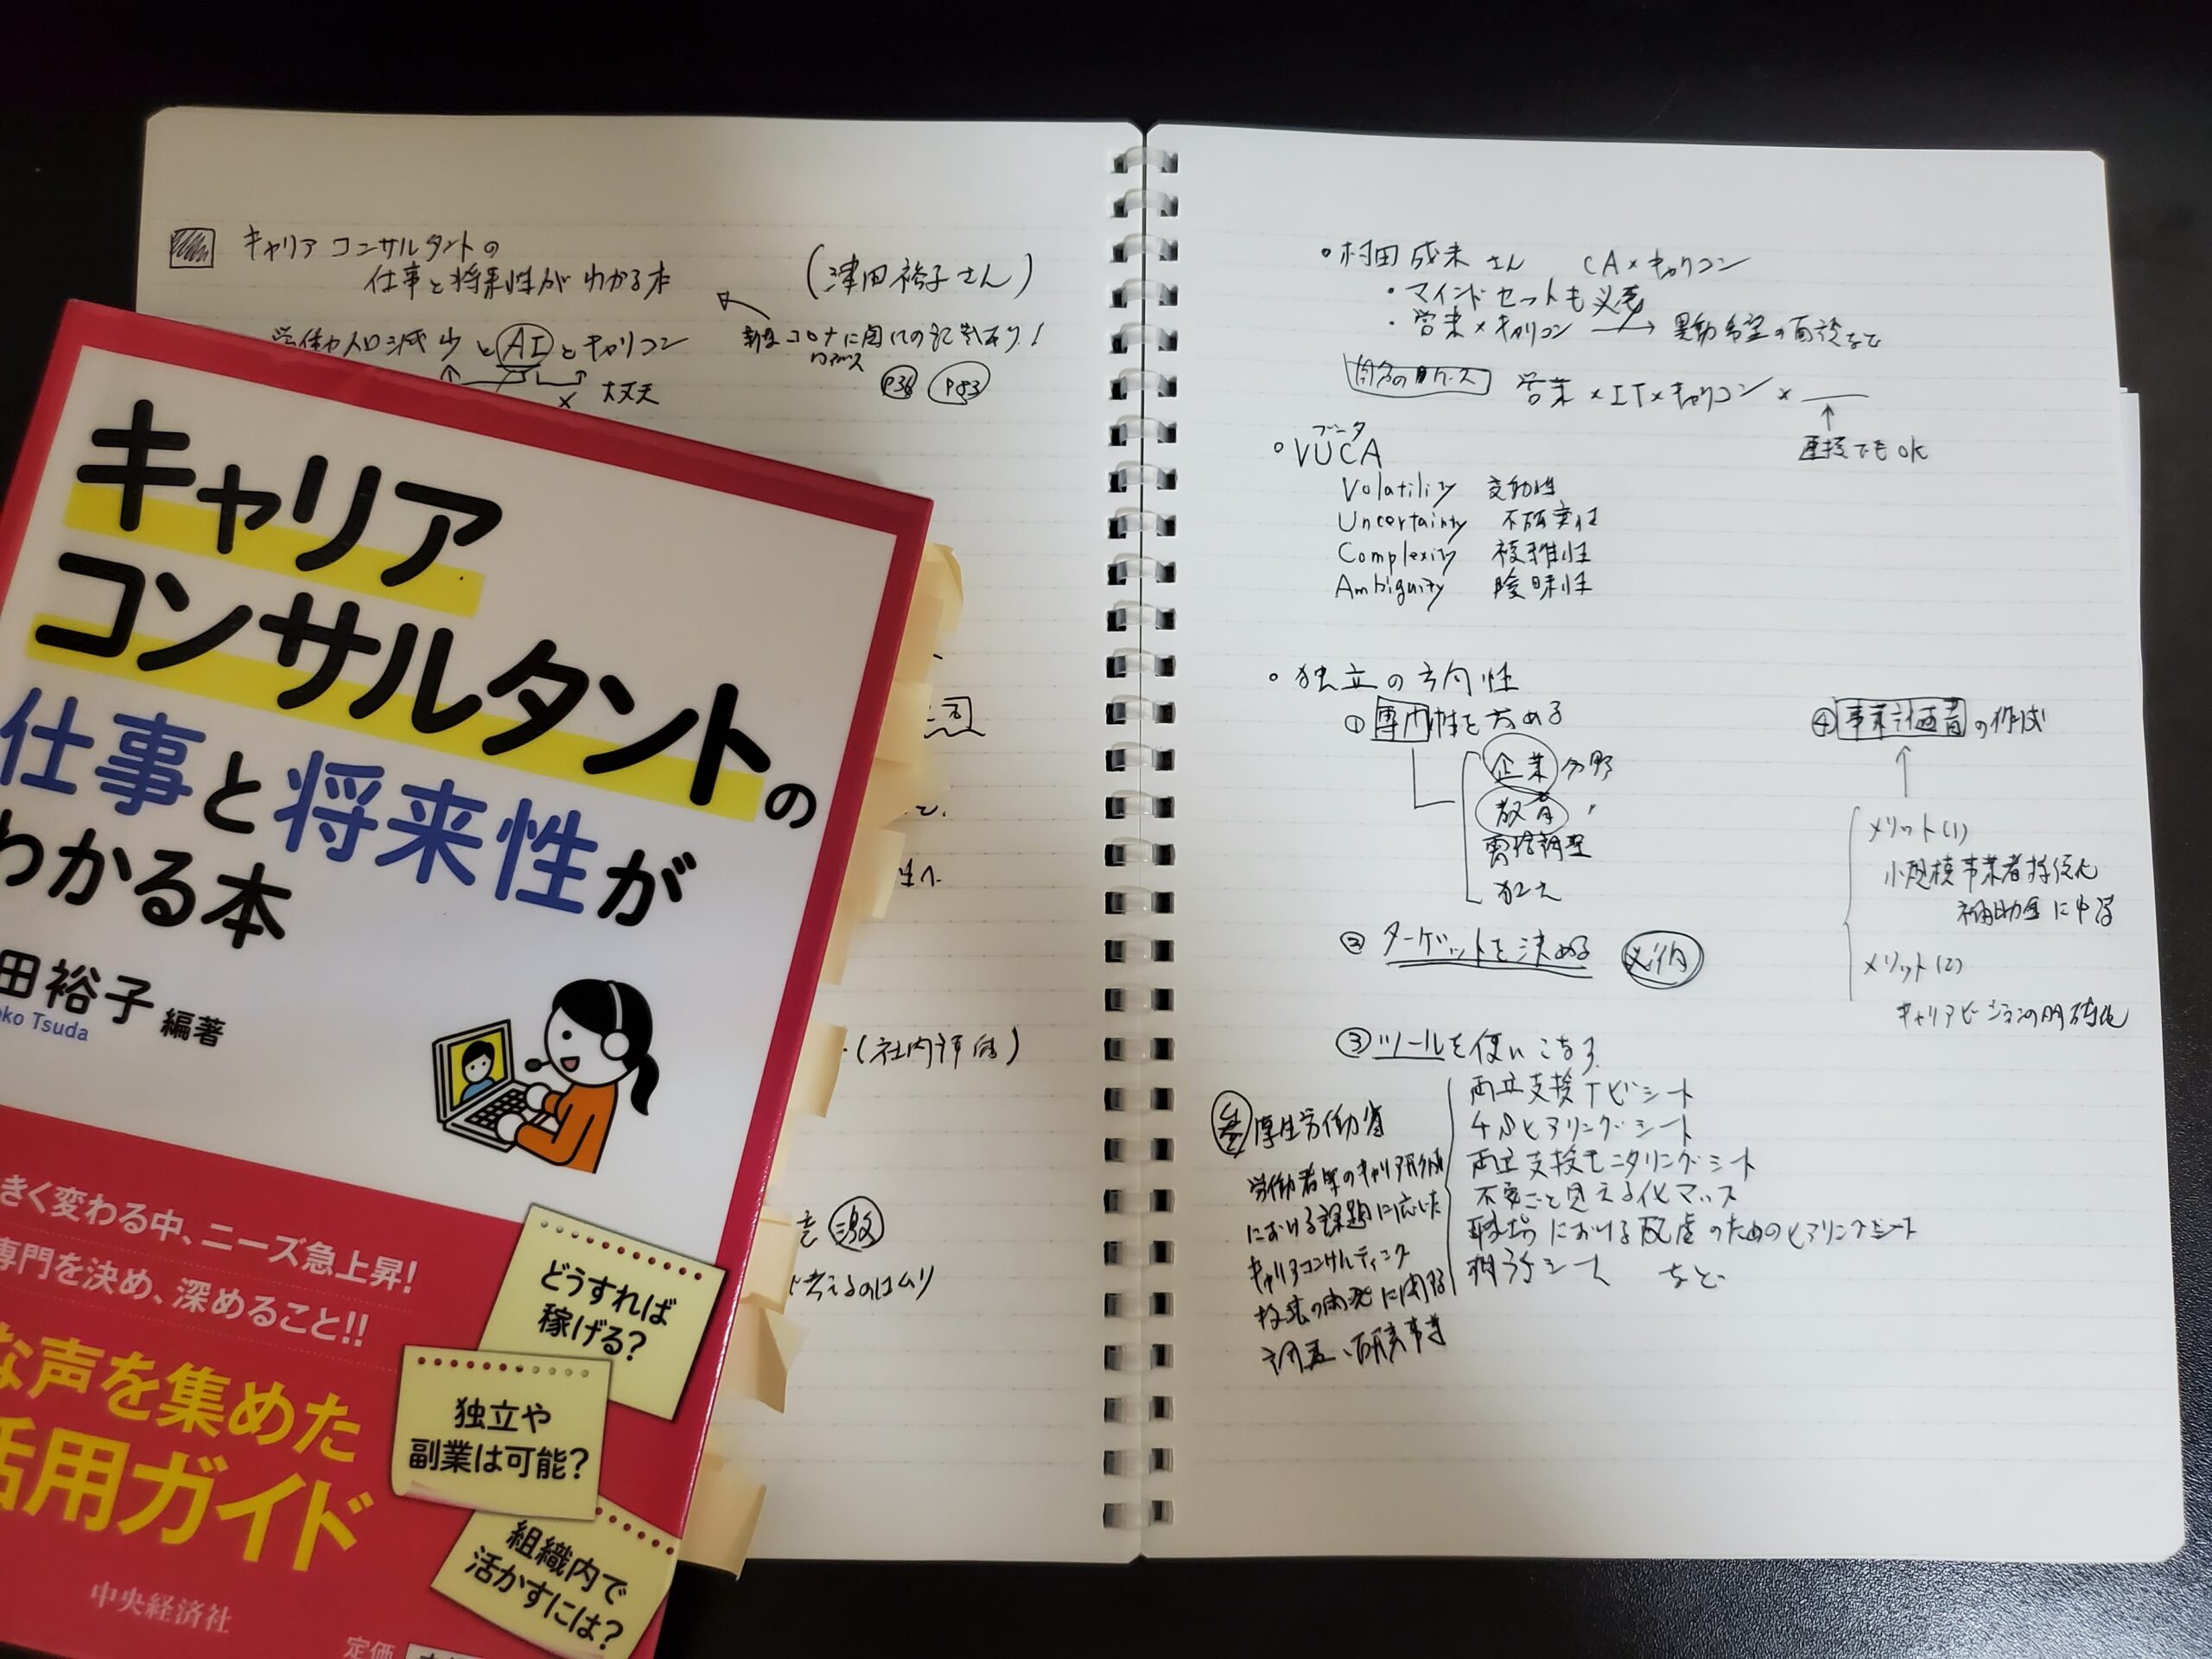 キャリア コンサルタントの
仕事と将来性がわかる本
(津田裕子さん)
労働人口減少と AI とキャリコン
新型コロナに関しての記事あり!
P36 P83
× 大丈夫
(社内評価)
を 激
考えるのはムリ
キャリア
コンサルタントの
仕事と将来性が
わかる本
田裕子 編著
ko Tsuda
きく変わる中、ニーズ急上昇!
専門を決め、深めること!!
な声を集めた
活用ガイド
どうすれば
稼げる?
独立や
副業は可能?
組織内で
活かすには?
中央経済社
定価
・村田成未さん CA×キャリコン
・マインドセットも必要
・営業×キャリコン → 異動希望の面談など
営業×IT×キャリコン×
↑
直接でもok
ブーカ
・VUCA
Volatility 変動性
Uncertainty 不確実性
Complexity 複雑性
Ambiguity 曖昧性
・独立の方向性
① 専門性を高める
企業分野
教育 〃
需給調整
② ターゲットを決める 必須
③ ツールを使いこなす
両立支援ナビシート
ヒアリングシート
両立支援モニタリングシート
不安ごと見える化マップ
職場における配慮のためのヒアリングシート
など
参 厚生労働省
労働者等のキャリア形成
における課題に応じた
キャリアコンサルティング
技法の開発に関する
調査・研究事業
④ 事業計画書の作成
↑
メリット(1)
小規模事業者持続化
補助金に申請
メリット(2)
キャリアビジョンの明確化